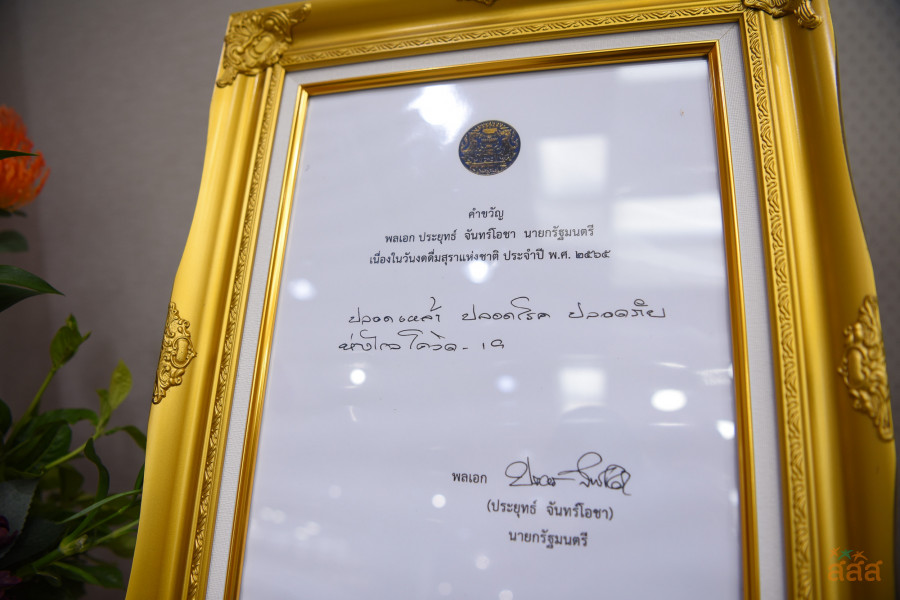 คำขวัญ
พลเอก ประยุทธ์ จันทร์โอชา นายกรัฐมนตรี
เนื่องในวันงดดื่มสุราแห่งชาติ ประจำปี พ.ศ. ๒๕๖๕
ปลอดเหล้า ปลอดโรค ปลอดภัย
ห่างไกลโควิด - 19
พลเอก
(ประยุทธ์ จันทร์โอชา)
นายกรัฐมนตรี
สสส